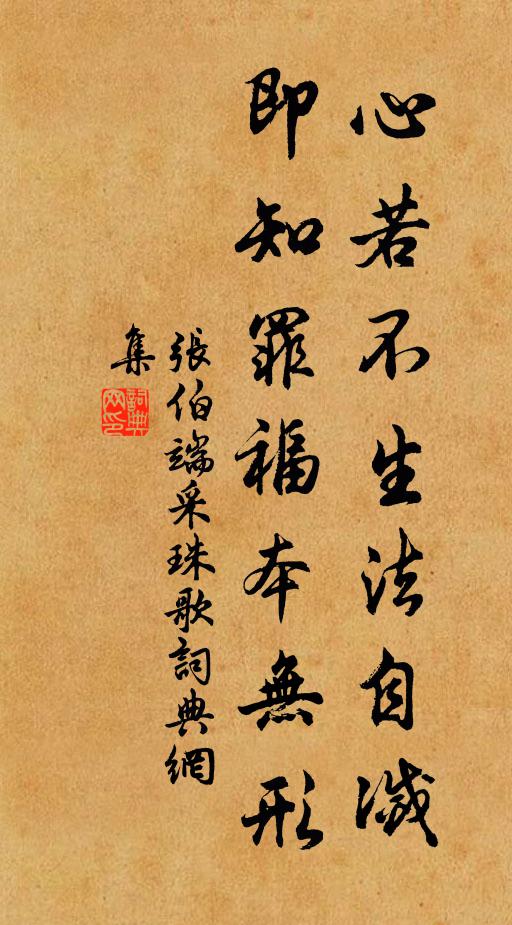 心若不生法自滅
即知罪福本無形
張伯端采珠歌詞典網
集
詞典網印